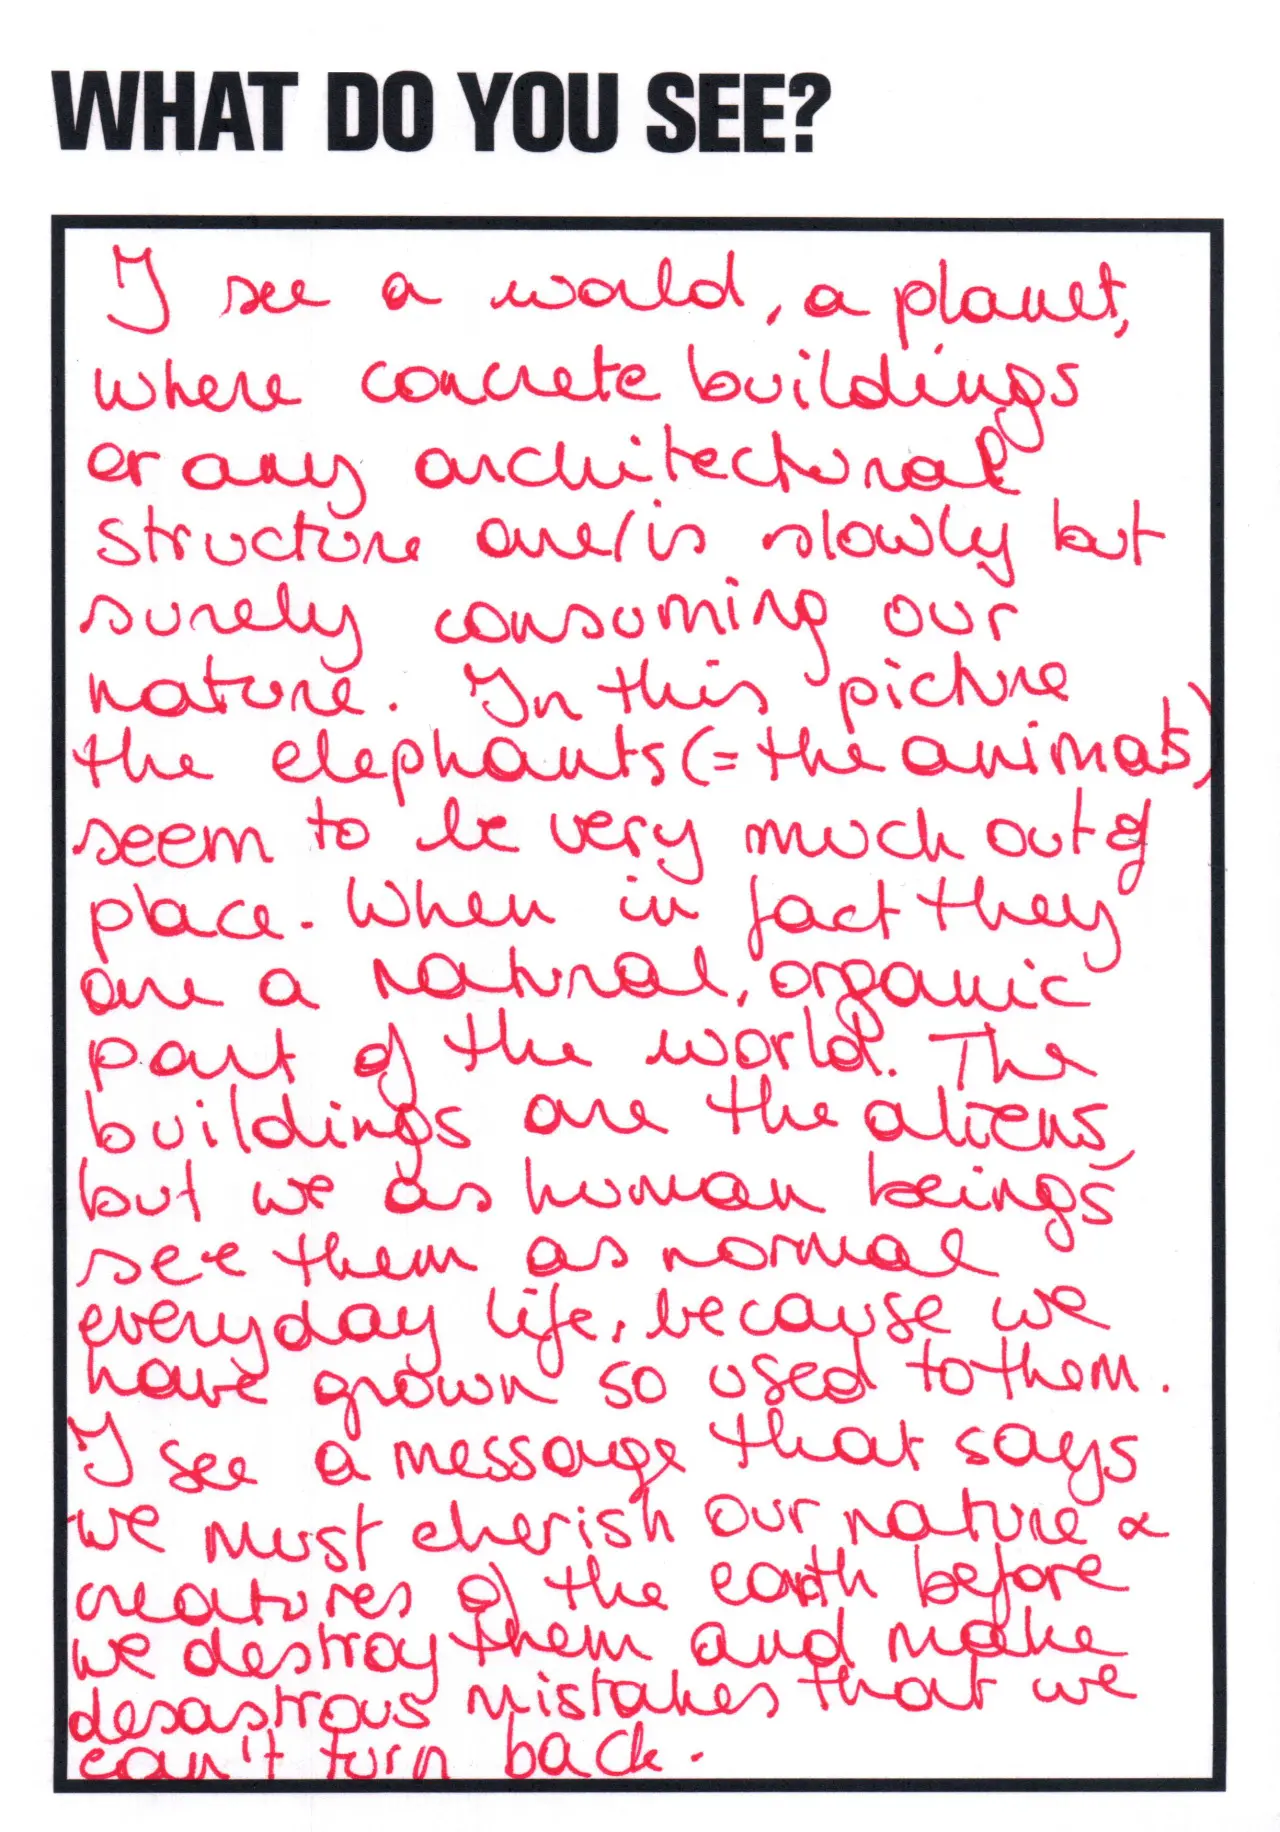 WHAT DO YOU SEE?
I see a world, a planet,
where concrete buildings
or any architectural
structure are/is slowly but
surely consuming our
nature. In this picture
the elephants (= the animals)
seem to be very much out of
place. When in fact they
are a natural, organic
part of the world. The
buildings are the aliens,
but we as human beings
see them as normal
everyday life, because we
have grown so used to them.
I see a message that says
we must cherish our nature &
creatures of the earth before
we destroy them and make
desastrous mistakes that we
can't turn back.